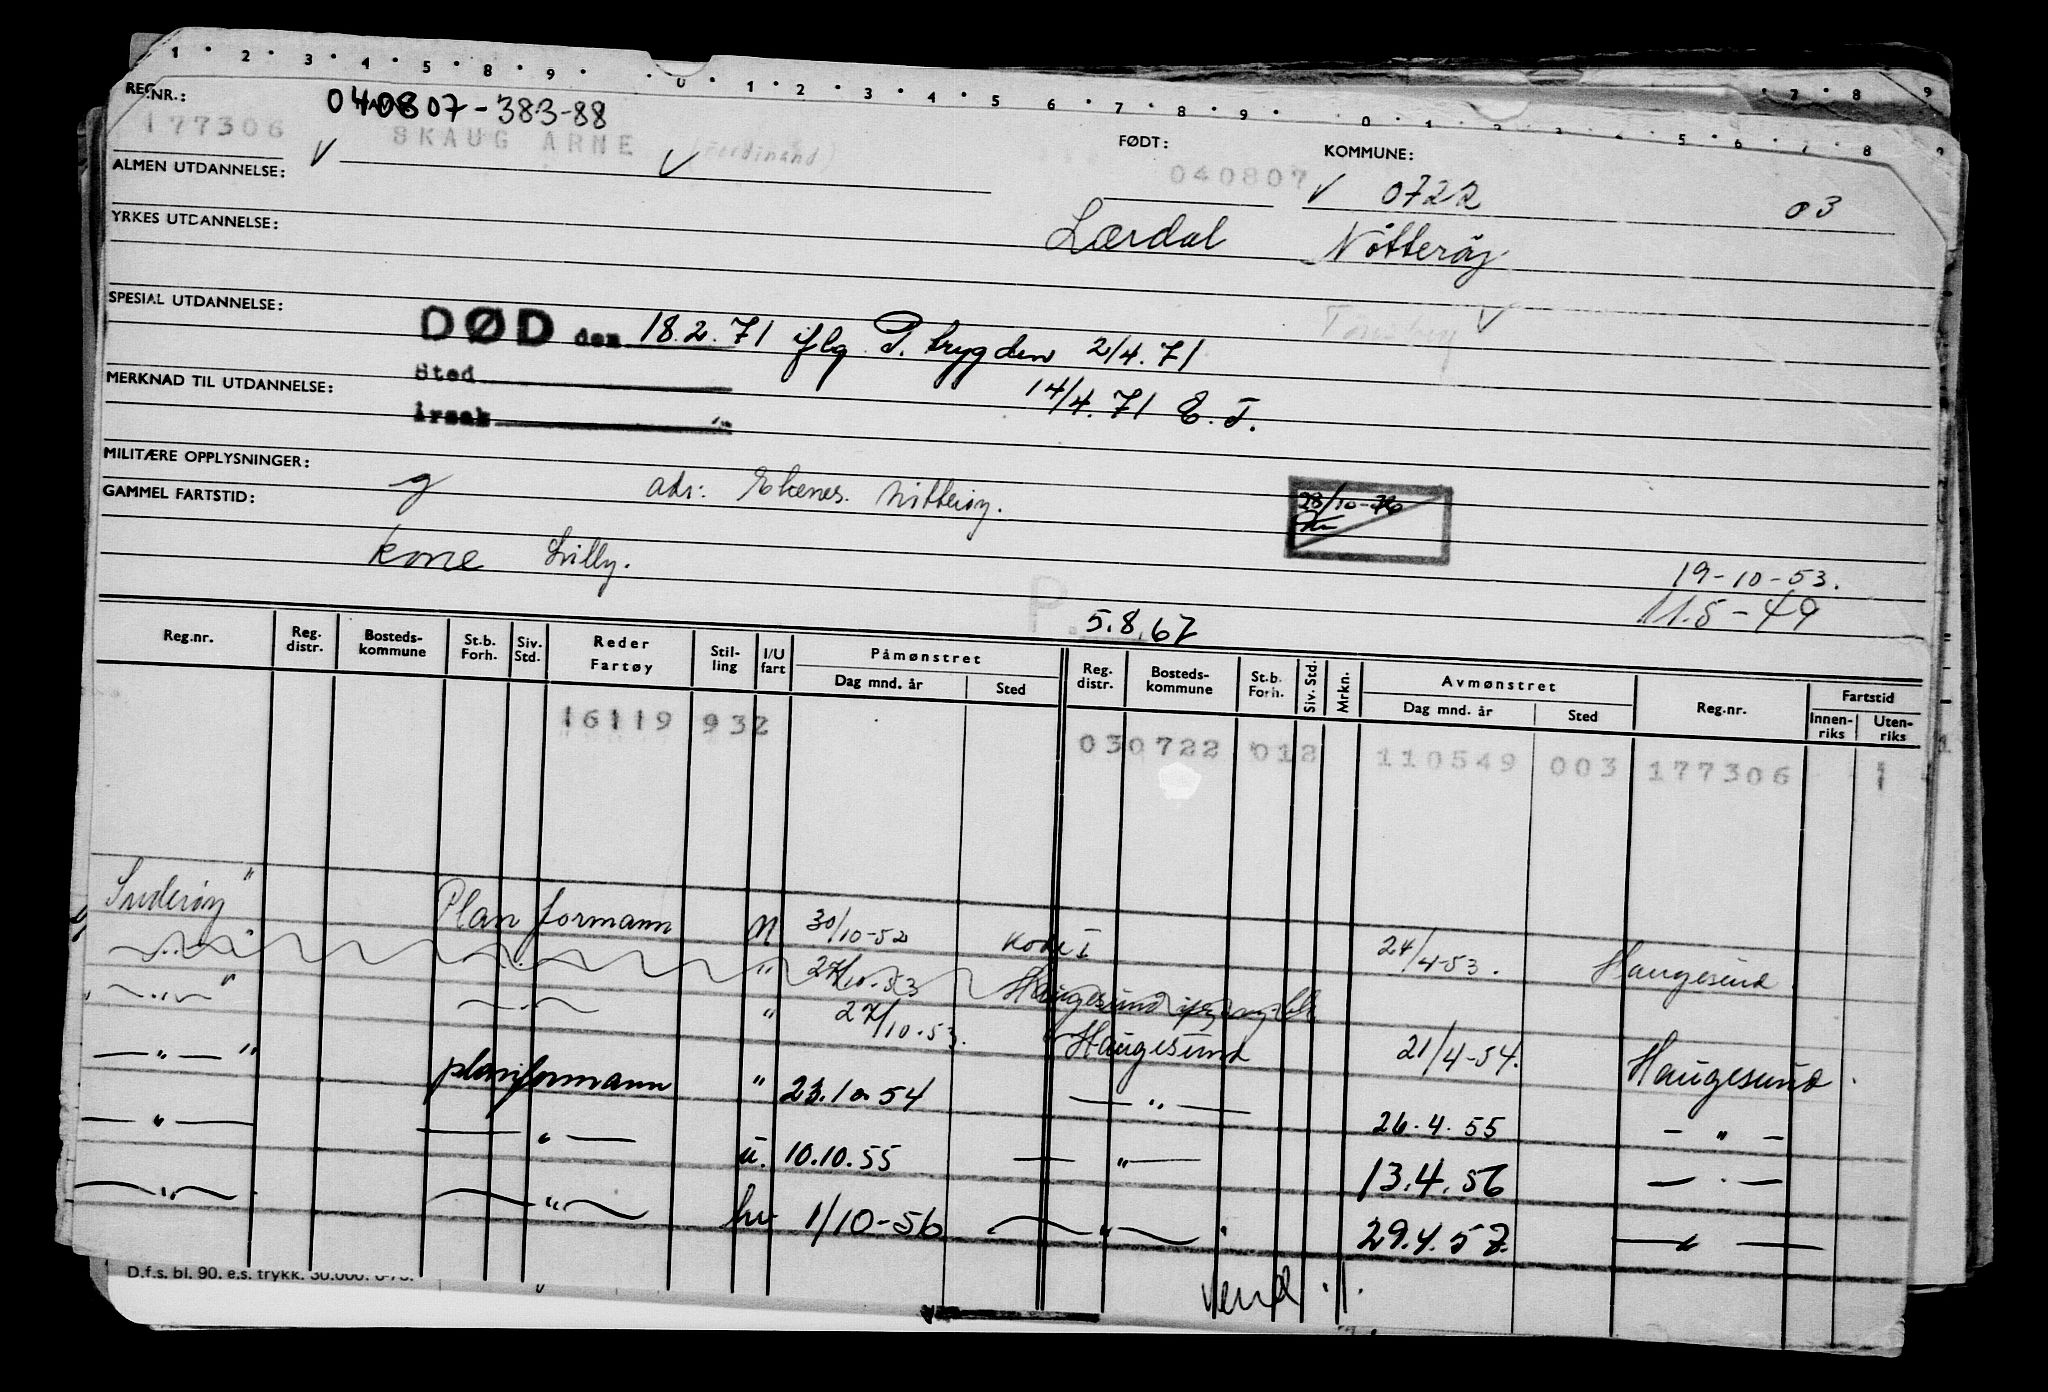 1 2 3 4 5 8 9 0 1 2 3 4 5 6 7 8 9 0 1 2 3 5 6 7 8 9
7 8 9
REG.NR.: 040807-383-88
177306 SKAUG ARNE (Ferdinand) FØDT: KOMMUNE:
ALMEN UTDANNELSE: 040807 0722 03
YRKES UTDANNELSE: Lærdal Nøtterøy
SPESIAL UTDANNELSE: Tønsberg
DØD den 18.2.71 iflg P. trygden 2/4.71
Sted
MERKNAD TIL UTDANNELSE: 14/4.71 E.T.
Årsak
MILITÆRE OPPLYSNINGER:
GAMMEL FARTSTID: g adr: Ekenes. Nøtterøy. 28/10-76
kone Lilly. 19-10-53.
P. 5.8.67 11.5-49
Reg.nr. Reg. distr. Bosteds-kommune St.b. Forh. Siv. Std. Reder Fartøy Stil-ling I/U fart Påmønstret Dag mnd. år Sted Reg. distr. Bosteds-kommune St.b. Forh. Siv. Std. Mrkn. Avmønstret Dag mnd. år Sted Reg.nr. Fartstid Innen-riks Uten-riks
16119 932 030722 012 110549 003 177306 1
Suderøy" Plan formann 30/10-52 24/4-53. Haugesund
" 27/10-53 Haugesund
" " 27/10.53. Haugesund 21/4-54. Haugesund.
— " — " planformann " 23.10.54 — " — 26.4.55 — " —
— " — — " — u. 10.10.55 — " — 13.4.56 — " —
— " — — " — hv 1/10-56 — " — 29.4.57. — " —
D.f.s. bl. 90. e.s. trykk. 30.000.
Vend ./.